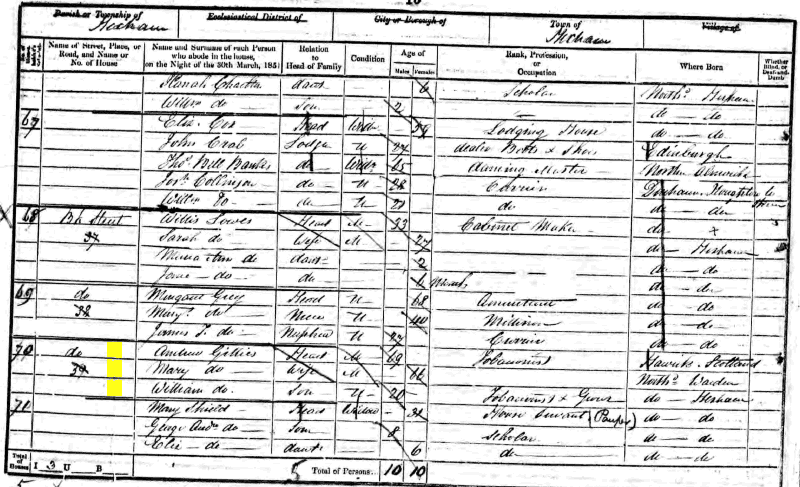 Parish or Township of Hexham
Ecclesiastical District of
City or Borough of
Town of Hexham
Village of
Name of Street, Place, or Road, and Name or No. of House
Name and Surname of each Person who abode in the house, on the Night of the 30th March, 1851
Relation to Head of Family
Condition
Age of
Males Females
Rank, Profession, or Occupation
Where Born
Whether Blind, or Deaf-and-Dumb
daur 6 Scholar Northd Hexham
Willm do Son 2 do do
67 Head Widr Lodging House do do
John Lodger U 27 dealer Boots & Shoes Edinburgh
Thos Bell do Widr 65 Master
Josh Collinson do U 28 Currier
Willm do do U 21 do do do
68 Willm Lowes Head M 33 Cabinet Maker do
37 Sarah do Wife M 27 do Hexham
Ann do daur 2 do do
Jane do do do do
69 do Margaret Grey Head U 68 Annuitant do do
38 Mary do Niece U 40 do do
James T. do Nephew U 27 Currier do do
70 do Andrew Gillies Head M 69 Tobacconist Hawick Scotland
39 Mary do Wife M 66 Northd Warden
William do Son U 20 Tobacconist & Grocer do Hexham
71 Mary Shield Head Widow 32 House Servant (Pauper) do do
George Andw do Son 8 Scholar do do
Eliz do daur 6 do do do
Total of Houses I 3 U B
5 Total of Persons 10 10